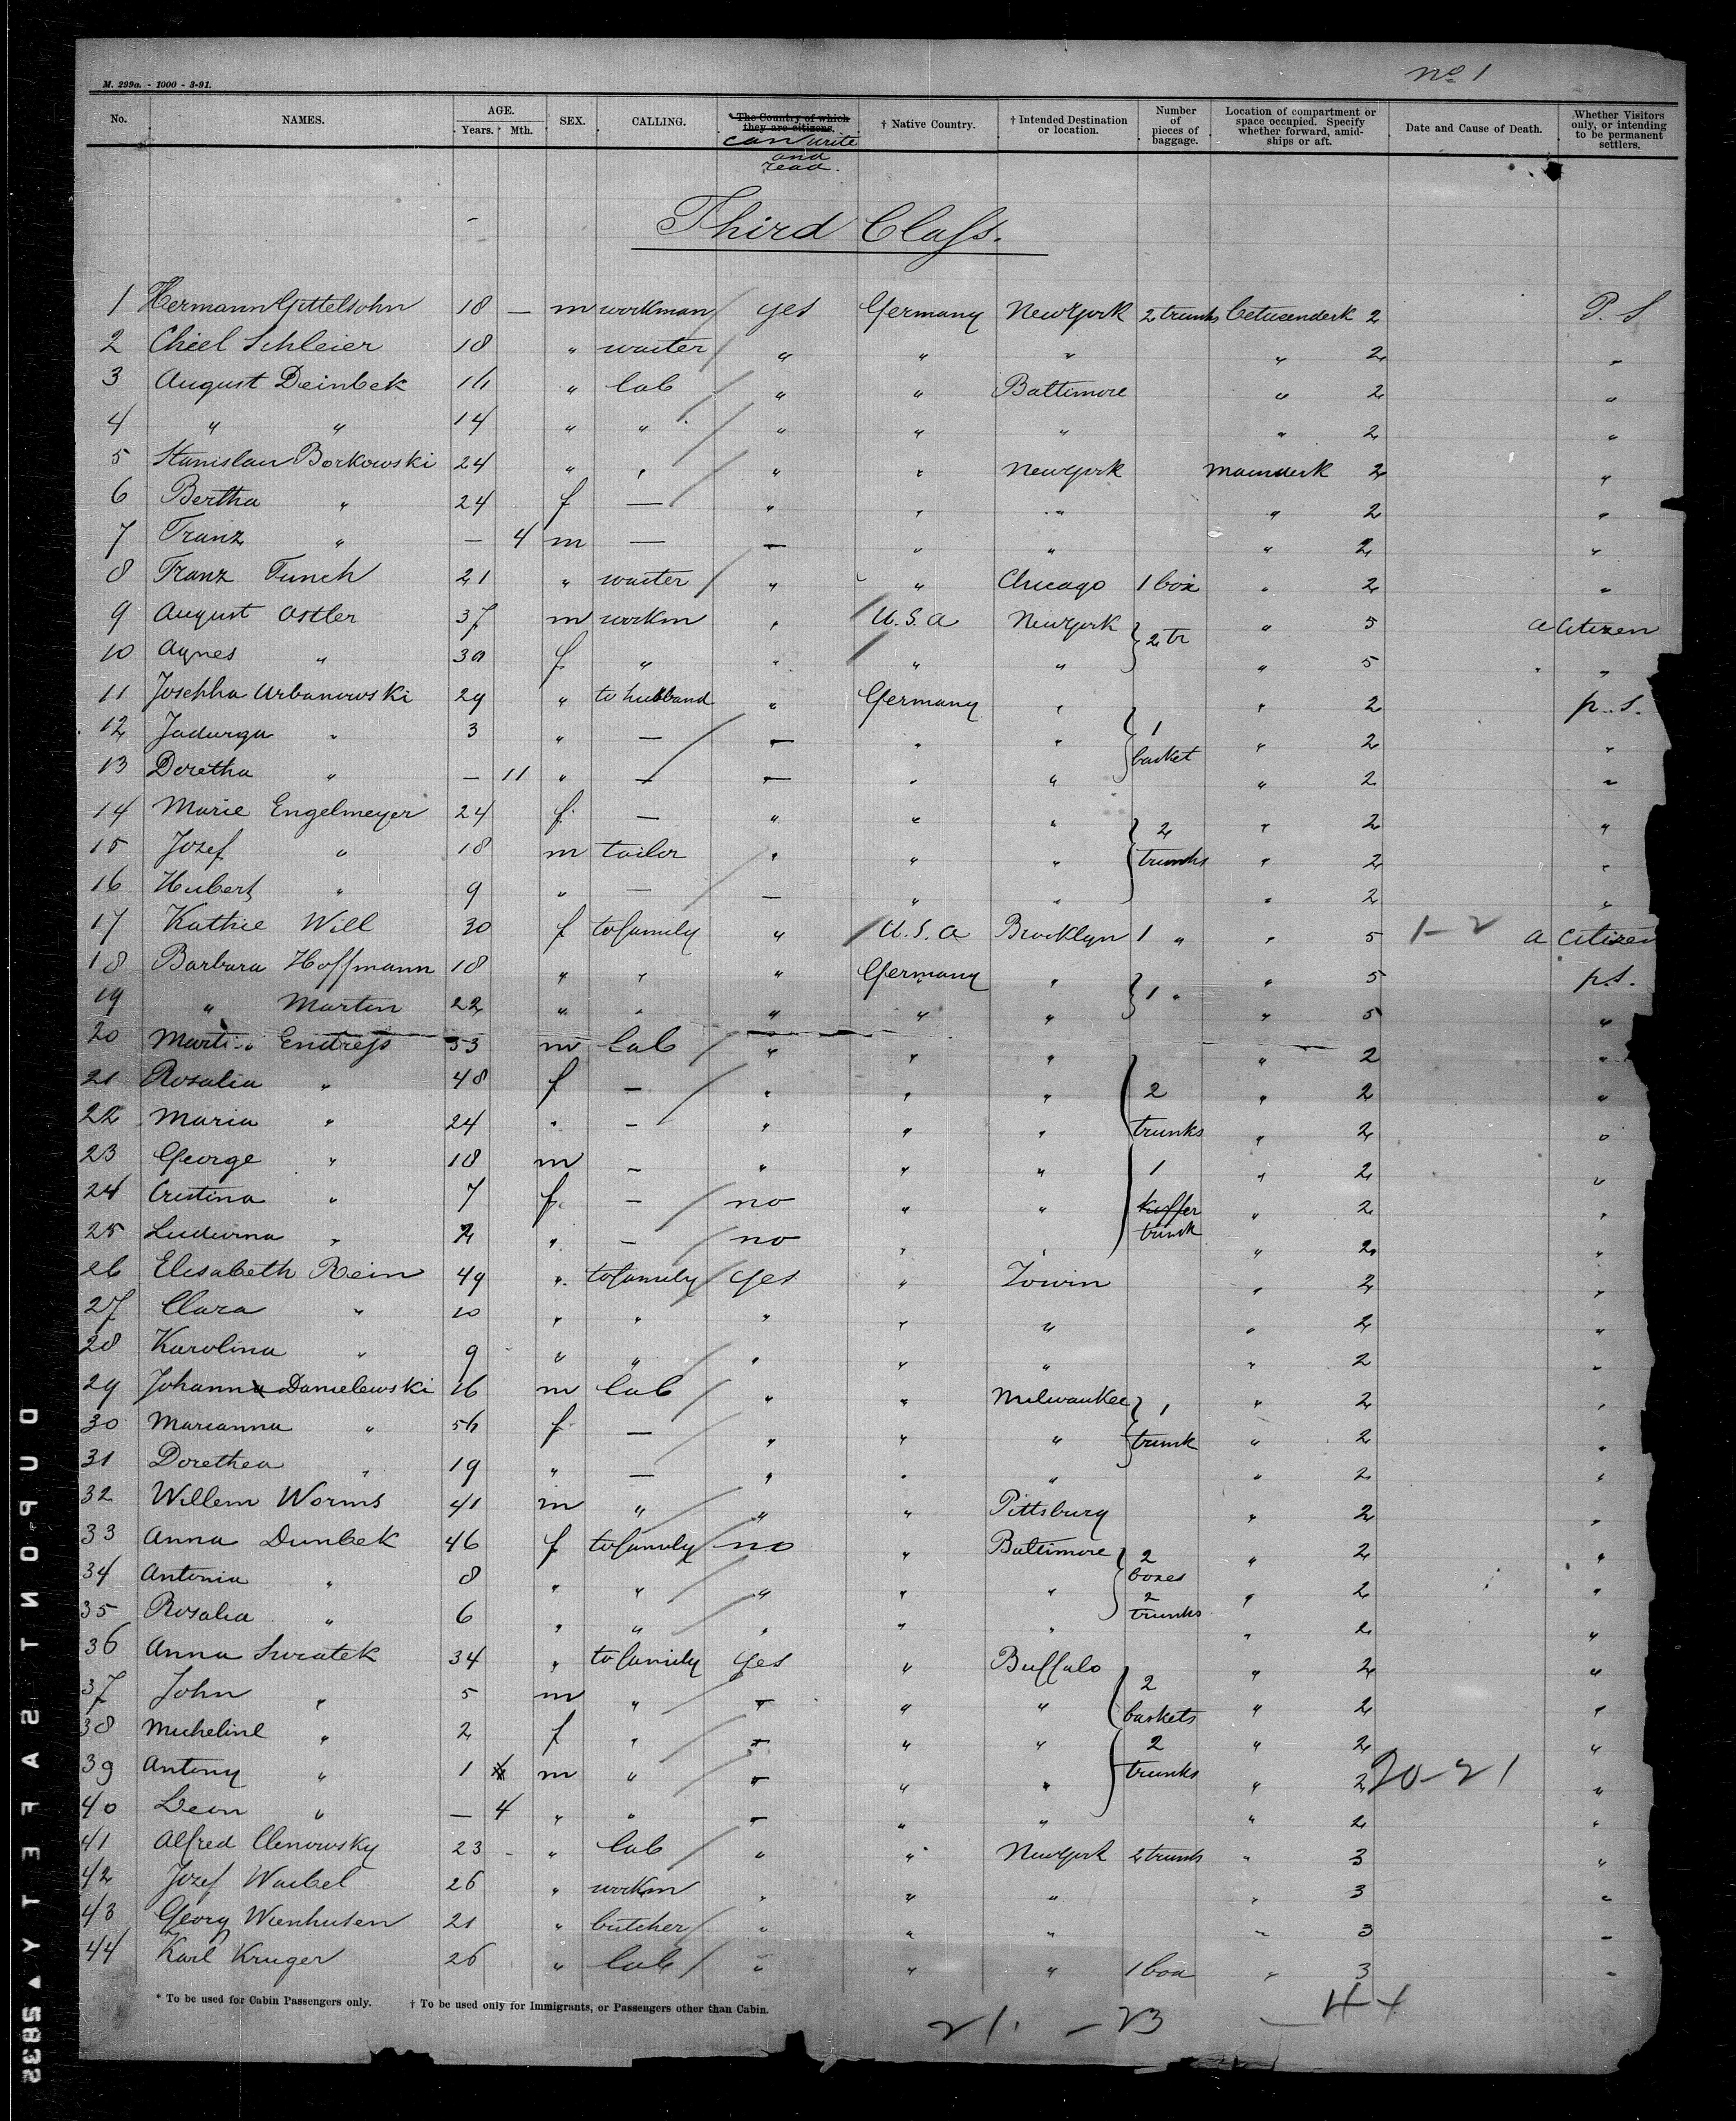 No 1
M. 299a. - 1000 - 3-91.
No. NAMES. AGE. Years. Mth. SEX. CALLING. * The Country of which they are citizens. can write and read. † Native Country. † Intended Destination or location. Number of pieces of baggage. Location of compartment or space occupied. Specify whether forward, amidships or aft. Date and Cause of Death. Whether Visitors only, or intending to be permanent settlers.
Third Class.
1 Hermann Gittelsohn 18 — m workman yes Germany New York 2 trunks betweenderk 2 P. S
2 Chiel Schleier 18 " waiter " " " " 2 "
3 August Deinbek 16 " lab " " Baltimore " 2 "
4 " " 14 " " " " " " 2 "
5 Stanislau Borkowski 24 " " " " New York mainderk 2 "
6 Bertha " 24 f — " " " " 2 "
7 Franz " — 4 m — — " " " 2 "
8 Franz Funch 21 " waiter " " Chicago 1 box " 2 "
9 August Ostler 37 m workm " U.S.a New York 2 tr " 5 a Citizen
10 Agnes " 30 f " " " " " 5 " "
11 Josepha Urbanowski 29 " to husband " Germany " " 2 p. S.
12 Jadwiga " 3 " — — " " 1 basket " 2 "
13 Doretha " — 11 " — — " " " 2 "
14 Marie Engelmeyer 24 f — " " " 2 trunks " 2 "
15 Jozef " 18 m tailor " " " " 2 "
16 Hubert " 9 " — — " " " 2 "
17 Kathie Will 30 f to family " U.S.a Brooklyn 1 " " 5 1-2 a Citizen
18 Barbara Hoffmann 18 " " " Germany " 1 " " 5 p.S.
19 " Martin 22 " " " " " " 5 "
20 Martin Endress 53 m lab " " " " 2 "
21 Rosalia " 48 f — " " " 2 trunks " 2 "
22 Maria " 24 " — " " " " 2 "
23 George " 18 m — " " " 1 kuffer trunk " 2 "
24 Cristina " 7 f — no " " " 2 "
25 Ludwina " 2 " — no " " " 2 "
26 Elisabeth Rein 49 " to family yes " " 2 "
27 Clara " 10 " " " " " " 2 "
28 Karolina " 9 " " " " " " 2 "
29 Johann Danielewski 16 m lab " " Milwaukee 1 trunk " 2 "
30 Marianna " 56 f — " " " " 2 "
31 Dorethea " 19 " — " " " " 2 "
32 Willem Worms 41 m " " " Pittsburg " 2 "
33 Anna Dunbek 46 f to family no " Baltimore 2 boxes 2 trunks " 2 "
34 Antonia " 8 " " " " " " 2 "
35 Rosalia " 6 " " " " " " 2 "
36 Anna Swiatek 34 " to family yes " Buffalo " 2 "
37 John " 5 m " — " " 2 baskets " 2 "
38 Micheline " 2 f " — " " 2 trunks " 2 "
39 Antony " 1 m " — " " " 2 20-21 "
40 Leon " — 4 " " — " " " 2 "
41 Alfred Clenowsky 23 - " lab " " New York 2 trunks " 3 "
42 Jozef Waibel 26 " workm " " " " 3 "
43 Georg Wienhusen 21 " butcher " " " " 3 "
44 Karl Kruger 26 " lab " " " 1 box " 3 "
* To be used for Cabin Passengers only. † To be used only for Immigrants, or Passengers other than Cabin.
21. - 23 — 44
DUPONT SAFETY ▲ 5835